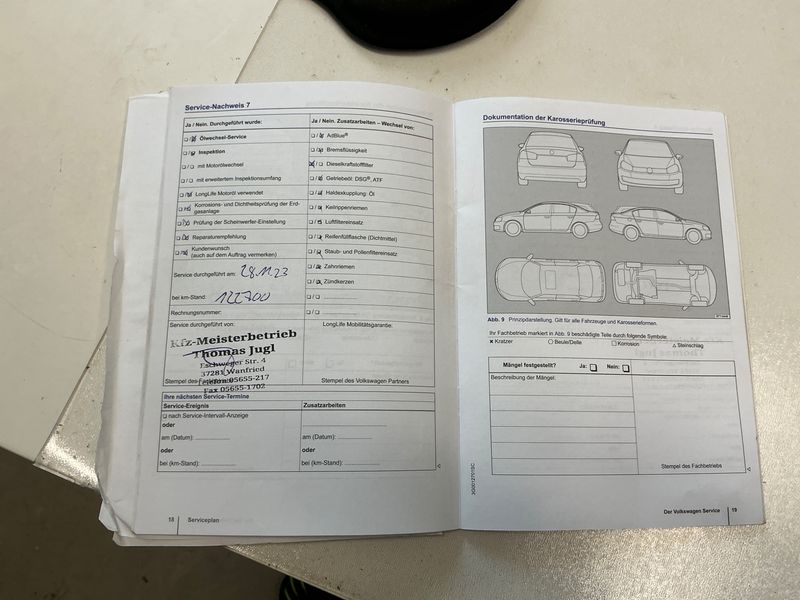 Service-Nachweis 7
Ja / Nein. Durchgeführt wurde:
Ölwechsel-Service
Inspektion
mit Motorölwechsel
mit erweitertem Inspektionsumfang
LongLife Motoröl verwendet
Korrosions- und Dichtheitsprüfung der Erd-
gasanlage
Prüfung der Scheinwerfer-Einstellung
Reparaturempfehlung
Kundenwunsch
(auch auf dem Auftrag vermerken)
Service durchgeführt am: 28.11.23
bei km-Stand: 122700
Rechnungsnummer:
Service durchgeführt von:
Kfz-Meisterbetrieb
Thomas Jugl
Eschweger Str. 4
37281 Wanfried
Telefon 05655-217
Fax 05655-1702
Ja / Nein. Zusatzarbeiten – Wechsel von:
AdBlue®
Bremsflüssigkeit
Dieselkraftstofffilter
Getriebeöl: DSG®, ATF
Haldexkupplung: Öl
Keilrippenriemen
Luftfiltereinsatz
Reifenfüllflasche (Dichtmittel)
Staub- und Pollenfiltereinsatz
Zahnriemen
Zündkerzen
LongLife Mobilitätsgarantie:
Stempel des Volkswagen Partners
Ihre nächsten Service-Termine
Service-Ereignis
nach Service-Intervall-Anzeige
oder
am (Datum):
oder
bei (km-Stand):
Zusatzarbeiten
am (Datum):
oder
bei (km-Stand):
18 Serviceplan
Dokumentation der Karosserieprüfung
Abb. 9 Prinzipdarstellung. Gilt für alle Fahrzeuge und Karosserieformen.
Ihr Fachbetrieb markiert in Abb. 9 beschädigte Teile durch folgende Symbole:
Kratzer Beule/Delle Korrosion Steinschlag
Mängel festgestellt? Ja: Nein:
Beschreibung der Mängel:
Stempel des Fachbetriebs
Der Volkswagen Service 19